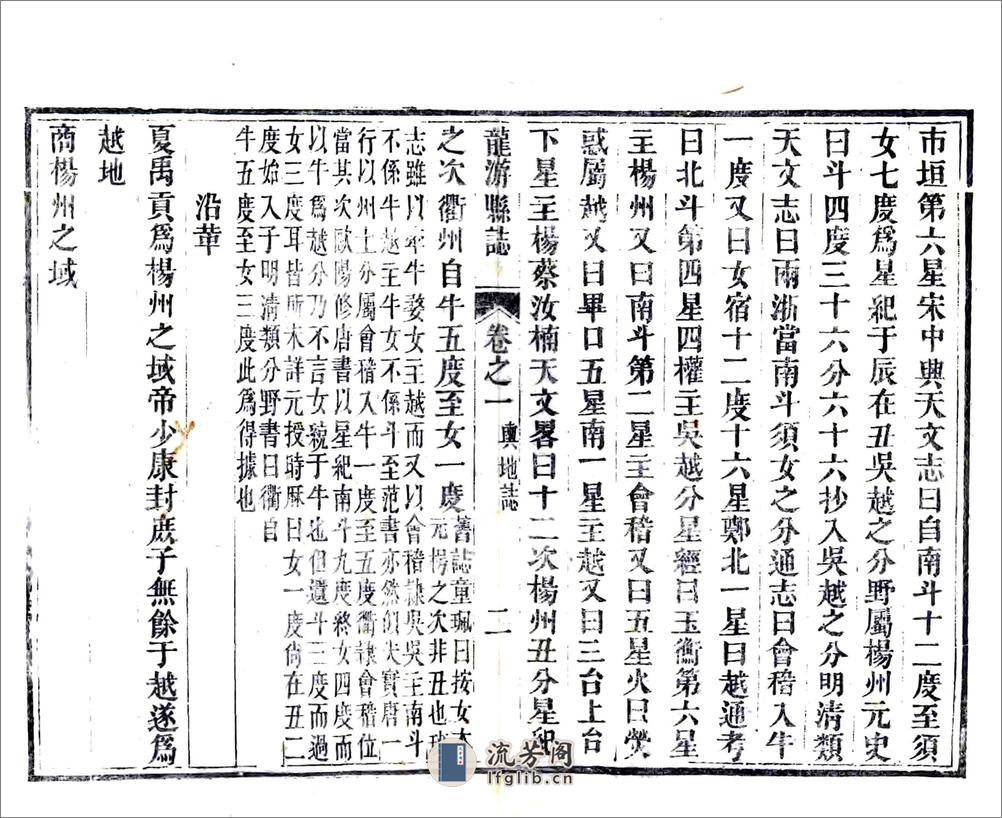 市垣第六星宋中興天文志曰自南斗十二度至須
女七度爲星紀于辰在丑吳越之分野屬楊州元史
曰斗四度三十六分六十六抄入吳越之分明清類
天文志曰兩浙當南斗須女之分通志曰會稽入牛
一度又曰女宿十二度十六星鄭北一星曰越通考
曰北斗第四星四權主吳越分星經曰玉衡第六星
主楊州又曰南斗第二星主會稽又曰五星火曰熒
惑屬越又曰畢口五星南一星主越又曰三台上台
下星主楊蔡汝楠天文畧曰十二次楊州丑分星紀
龍游縣誌
卷之一
輿地誌
二
之次衢州自牛五度至女一度
舊誌童珮曰按女本
元枵之次非丑也
志雖以牽牛婺女主越而又以會稽隸吳吳主南斗
不係牛越主牛女不係斗至范書亦然
行以州土分屬會稽入牛一度至五度衢隸會稽位
當其次歐陽修唐書以星紀南斗九度終女四度而
以牛爲越分乃不言女貌于牛也但遺斗三度而過
女三度耳皆所未詳元授時厤曰女一度尚在丑二
度始入子明清類分野書曰衢自
牛五度至女三度此爲得據也
沿革
夏禹貢爲楊州之域帝少康封庶子無餘于越遂爲
越地
商楊州之域
流芳阁
lfglib.cn